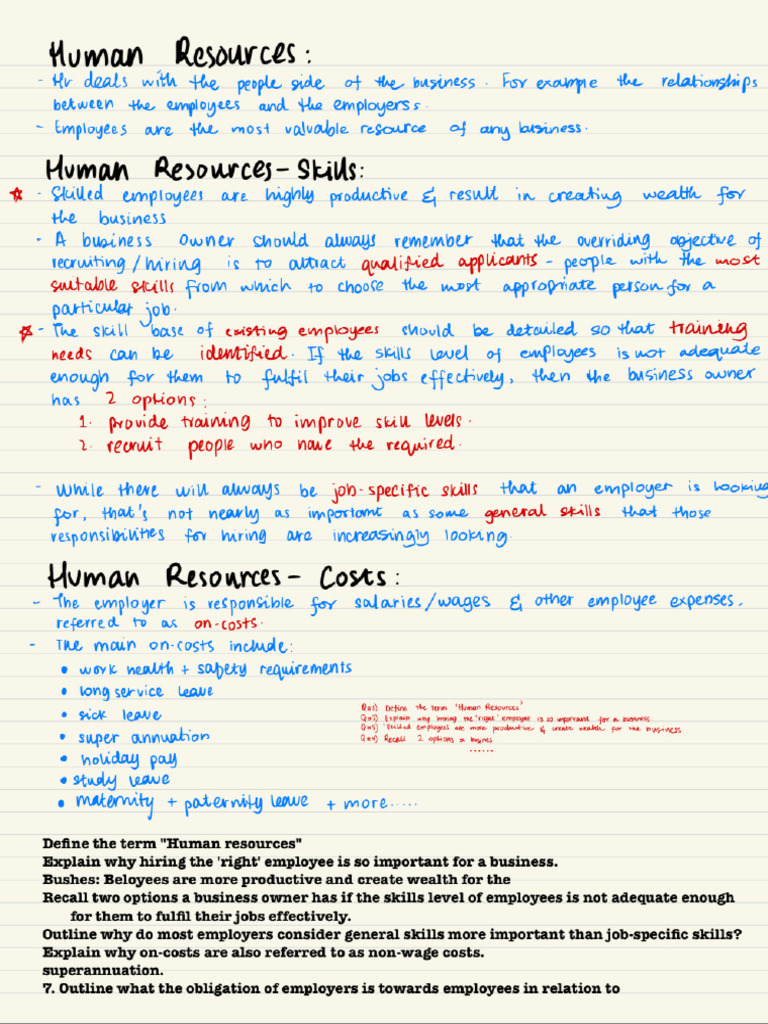 Human Resources:
- Hr deals with the people side of the business. For example the relationships
between the employees and the employerss.
- Employees are the most valuable resource of any business.
Human Resources - Skills:
☆ - Skilled employees are highly productive & result in creating wealth for
the business
- A business owner should always remember that the overriding objective of
recruiting/hiring is to attract qualified applicants - people with the most
suitable skills from which to choose the most appropriate person for a
particular job.
☆ - The skill base of existing employees should be detailed so that training
needs can be identified. If the skills level of employees is not adequate
enough for them to fulfil their jobs effectively, then the business owner
has 2 options:
1. provide training to improve skill levels.
2. recruit people who have the required.
- While there will always be job-specific skills that an employer is looking
for, that's not nearly as important as some general skills that those
responsibilities for hiring are increasingly looking.
Human Resources - Costs:
- The employer is responsible for salaries/wages & other employee expenses,
referred to as on-costs.
- The main on-costs include:
• work health + safety requirements
• long service leave
• sick leave
• super annuation
• holiday pay
• study leave
• maternity + paternity leave + more.....
Qn1) Define the term 'Human Resources'
Qn2) Explain why hiring the 'right' employee is so important for a business
Qn3) 'Skilled employees are more productive & create wealth for the business
Qn4) Recall 2 options a busines
......
Define the term "Human resources"
Explain why hiring the 'right' employee is so important for a business.
Bushes: Beloyees are more productive and create wealth for the
Recall two options a business owner has if the skills level of employees is not adequate enough
for them to fulfil their jobs effectively.
Outline why do most employers consider general skills more important than job-specific skills?
Explain why on-costs are also referred to as non-wage costs.
superannuation.
7. Outline what the obligation of employers is towards employees in relation to